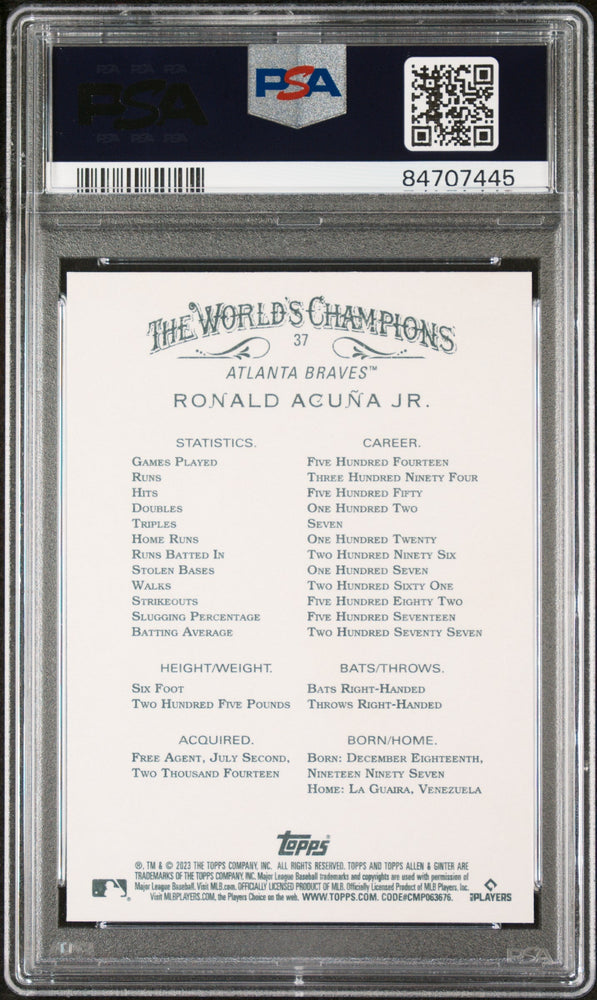 PSA
PSA
84707445
THE WORLD'S CHAMPIONS
37
ATLANTA BRAVES™
RONALD ACUÑA JR.
STATISTICS. CAREER.
GAMES PLAYED FIVE HUNDRED FOURTEEN
RUNS THREE HUNDRED NINETY FOUR
HITS FIVE HUNDRED FIFTY
DOUBLES ONE HUNDRED TWO
TRIPLES SEVEN
HOME RUNS ONE HUNDRED TWENTY
RUNS BATTED IN TWO HUNDRED NINETY SIX
STOLEN BASES ONE HUNDRED SEVEN
WALKS TWO HUNDRED SIXTY ONE
STRIKEOUTS FIVE HUNDRED EIGHTY TWO
SLUGGING PERCENTAGE FIVE HUNDRED SEVENTEEN
BATTING AVERAGE TWO HUNDRED SEVENTY SEVEN
HEIGHT/WEIGHT. BATS/THROWS.
SIX FOOT BATS RIGHT-HANDED
TWO HUNDRED FIVE POUNDS THROWS RIGHT-HANDED
ACQUIRED. BORN/HOME.
FREE AGENT, JULY SECOND, BORN: DECEMBER EIGHTEENTH,
TWO THOUSAND FOURTEEN NINETEEN NINETY SEVEN
HOME: LA GUAIRA, VENEZUELA
topps®
®, TM & © 2023 THE TOPPS COMPANY, INC. ALL RIGHTS RESERVED. TOPPS AND TOPPS ALLEN & GINTER ARE
TRADEMARKS OF THE TOPPS COMPANY, INC. Major League Baseball trademarks and copyrights are used with permission of
Major League Baseball. Visit MLB.com. OFFICIALLY LICENSED PRODUCT OF MLB. Officially Licensed Product of MLB Players, Inc.
Visit MLBPLAYERS.COM, the Players Choice on the web. WWW.TOPPS.COM. CODE#CMP063676.
PLAYERS
PSA